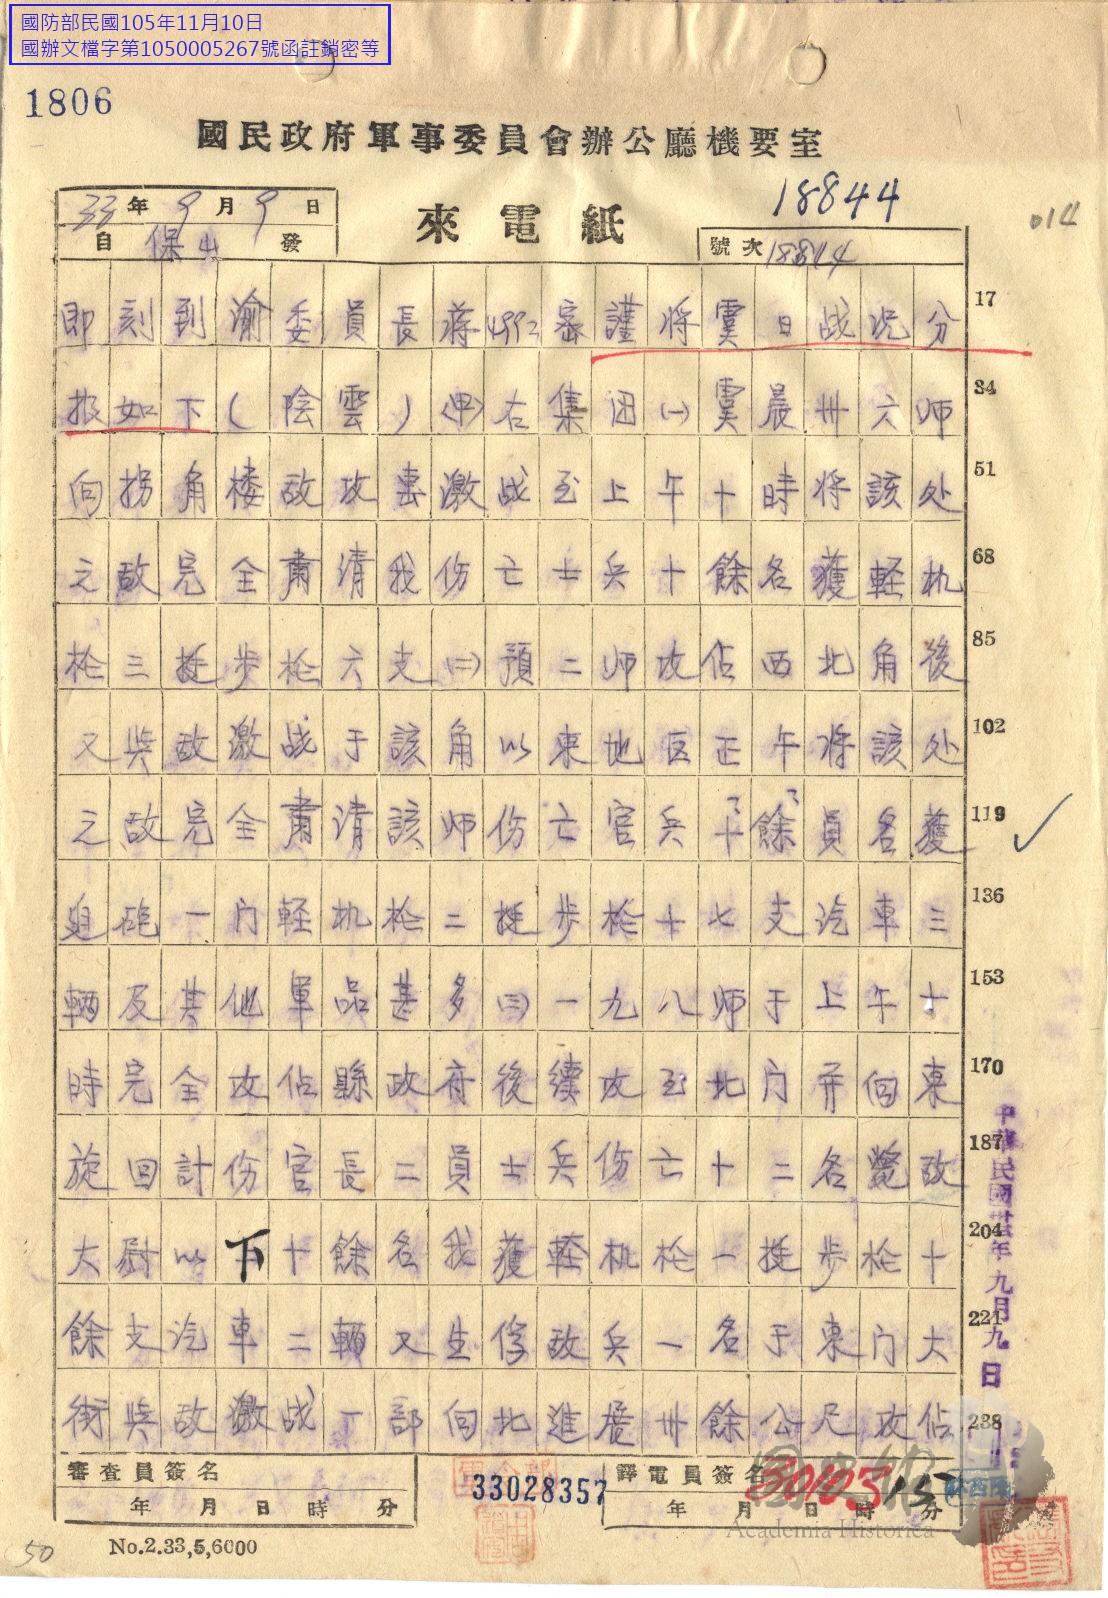 國防部民國105年11月10日
國辦文檔字第1050005267號函註銷密等
1806
國民政府軍事委員會辦公廳機要室
18844
014
33年9月9日
自保山發
來電紙
號次18844
即刻到渝委員長蔣4992密謹將虞日战况分 17
报如下(陰雲)(甲)右集团(一)虞晨卅六师 34
向拐角楼敌攻击激战至上午十時将該处 51
之敌完全肅清我伤亡士兵十餘名獲軽机 68
枪三挺步枪六支(二)預二师攻佔西北角後 85
又與敌激战于該角以東地区正午将該处 102
之敌完全肅清該师伤亡官兵十餘員名獲 119
迫砲一门軽机枪二挺步枪十七支汽車三 136
輛及其他軍品甚多(三)一九八师于上午十 153
時完全攻佔縣政府後續攻至北门并向東 170
旋回計伤官長二員士兵伤亡十二名斃敌 187
大尉以下十餘名我獲軽机枪一挺步枪十 204
餘支汽車二輛又生俘敌兵一名于東门大 221
街與敌激战一部向北進展卅餘公尺攻佔 238
中華民國卅三年九月九日
審查員簽名
年 月 日 時 分
33028357
譯電員簽名
年 月 日 時 分
30103
15
國史館
Academia Historica
50
No.2.33,5,6000